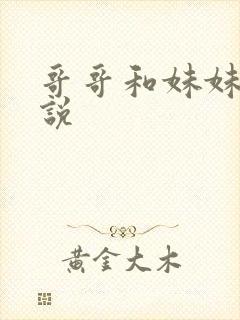 哥哥和妹妹
說
黄金大木